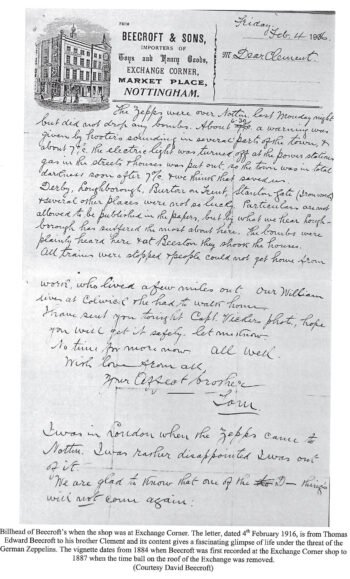 FROM
BEECROFT & SONS,
IMPORTERS OF
Toys and Fancy Goods,
EXCHANGE CORNER,
MARKET PLACE,
NOTTINGHAM.
Friday
Feb. 4 1916
My Dear Clement.
The Zepps were over Nottm last Monday night
but did not drop any bombs. About 6.30 a warning was
given by hooters sounding in several parts of the town, &
about 7 o'c. the electric light was turned off at the power station,
gas in the streets & houses was put out, so the town was in total
darkness soon after 7 o'c & we think that saved us
Derby, Loughborough, Burton on Trent, Stanton Gate (Ironworks)
& several other places were not so lucky. Particulars are not
allowed to be published in the papers, but by what we hear Lough-
borough has suffered the most about here. The bombs were
plainly heard here & at Beeston they shook the houses.
All trams were stopped & people could not get home from
work, who lived a few miles out. Our William
lives at Colwick & he had to walk home.
I have sent you tonight Capt. Vickers photo, hope
you will get it safely. let me know
No time for more now All well.
With love from all,
Your Affect brother
Tom.
I was in London when the Zepps came to
Nottm. I was rather disappointed I was out
of it.
We are glad to know that one of the D— things
will not come again.
Billhead of Beecroft's when the shop was at Exchange Corner. The letter, dated 4th February 1916, is from Thomas
Edward Beecroft to his brother Clement and its content gives a fascinating glimpse of life under the threat of the
German Zeppelins. The vignette dates from 1884 when Beecroft was first recorded at the Exchange Corner shop to
1887 when the time ball on the roof of the Exchange was removed.
(Courtesy David Beecroft)